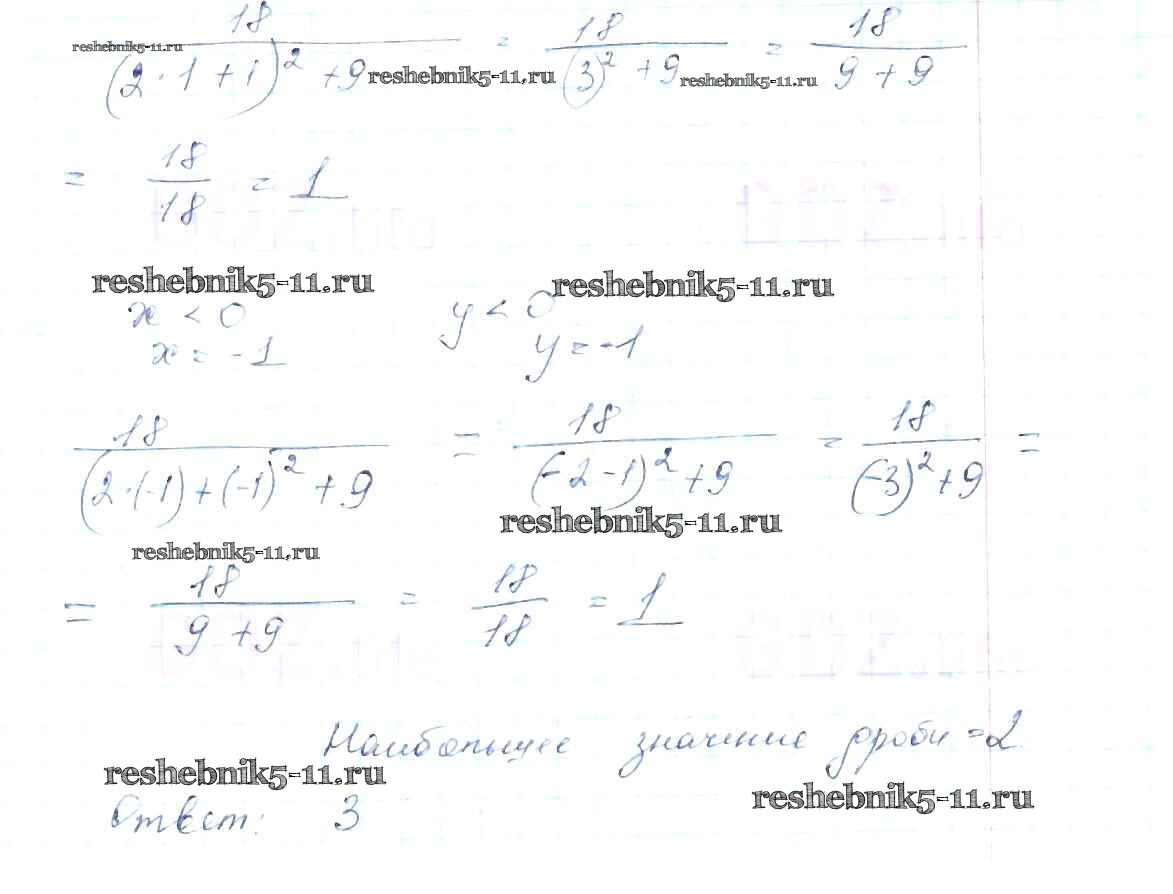 18 / (2·1+1)² +9 = 18 / (3)² +9 = 18 / 9+9
reshebnik5-11.ru reshebnik5-11.ru reshebnik5-11.ru
= 18 / 18 = 1
reshebnik5-11.ru reshebnik5-11.ru
x < 0 y < 0
x = -1 y = -1
18 / (2·(-1)+(-1))² +9 = 18 / (-2-1)² +9 = 18 / (-3)² +9 =
reshebnik5-11.ru
reshebnik5-11.ru
= 18 / 9+9 = 18 / 18 = 1
Наибольшее значение дроби =2
reshebnik5-11.ru reshebnik5-11.ru
Ответ: 3